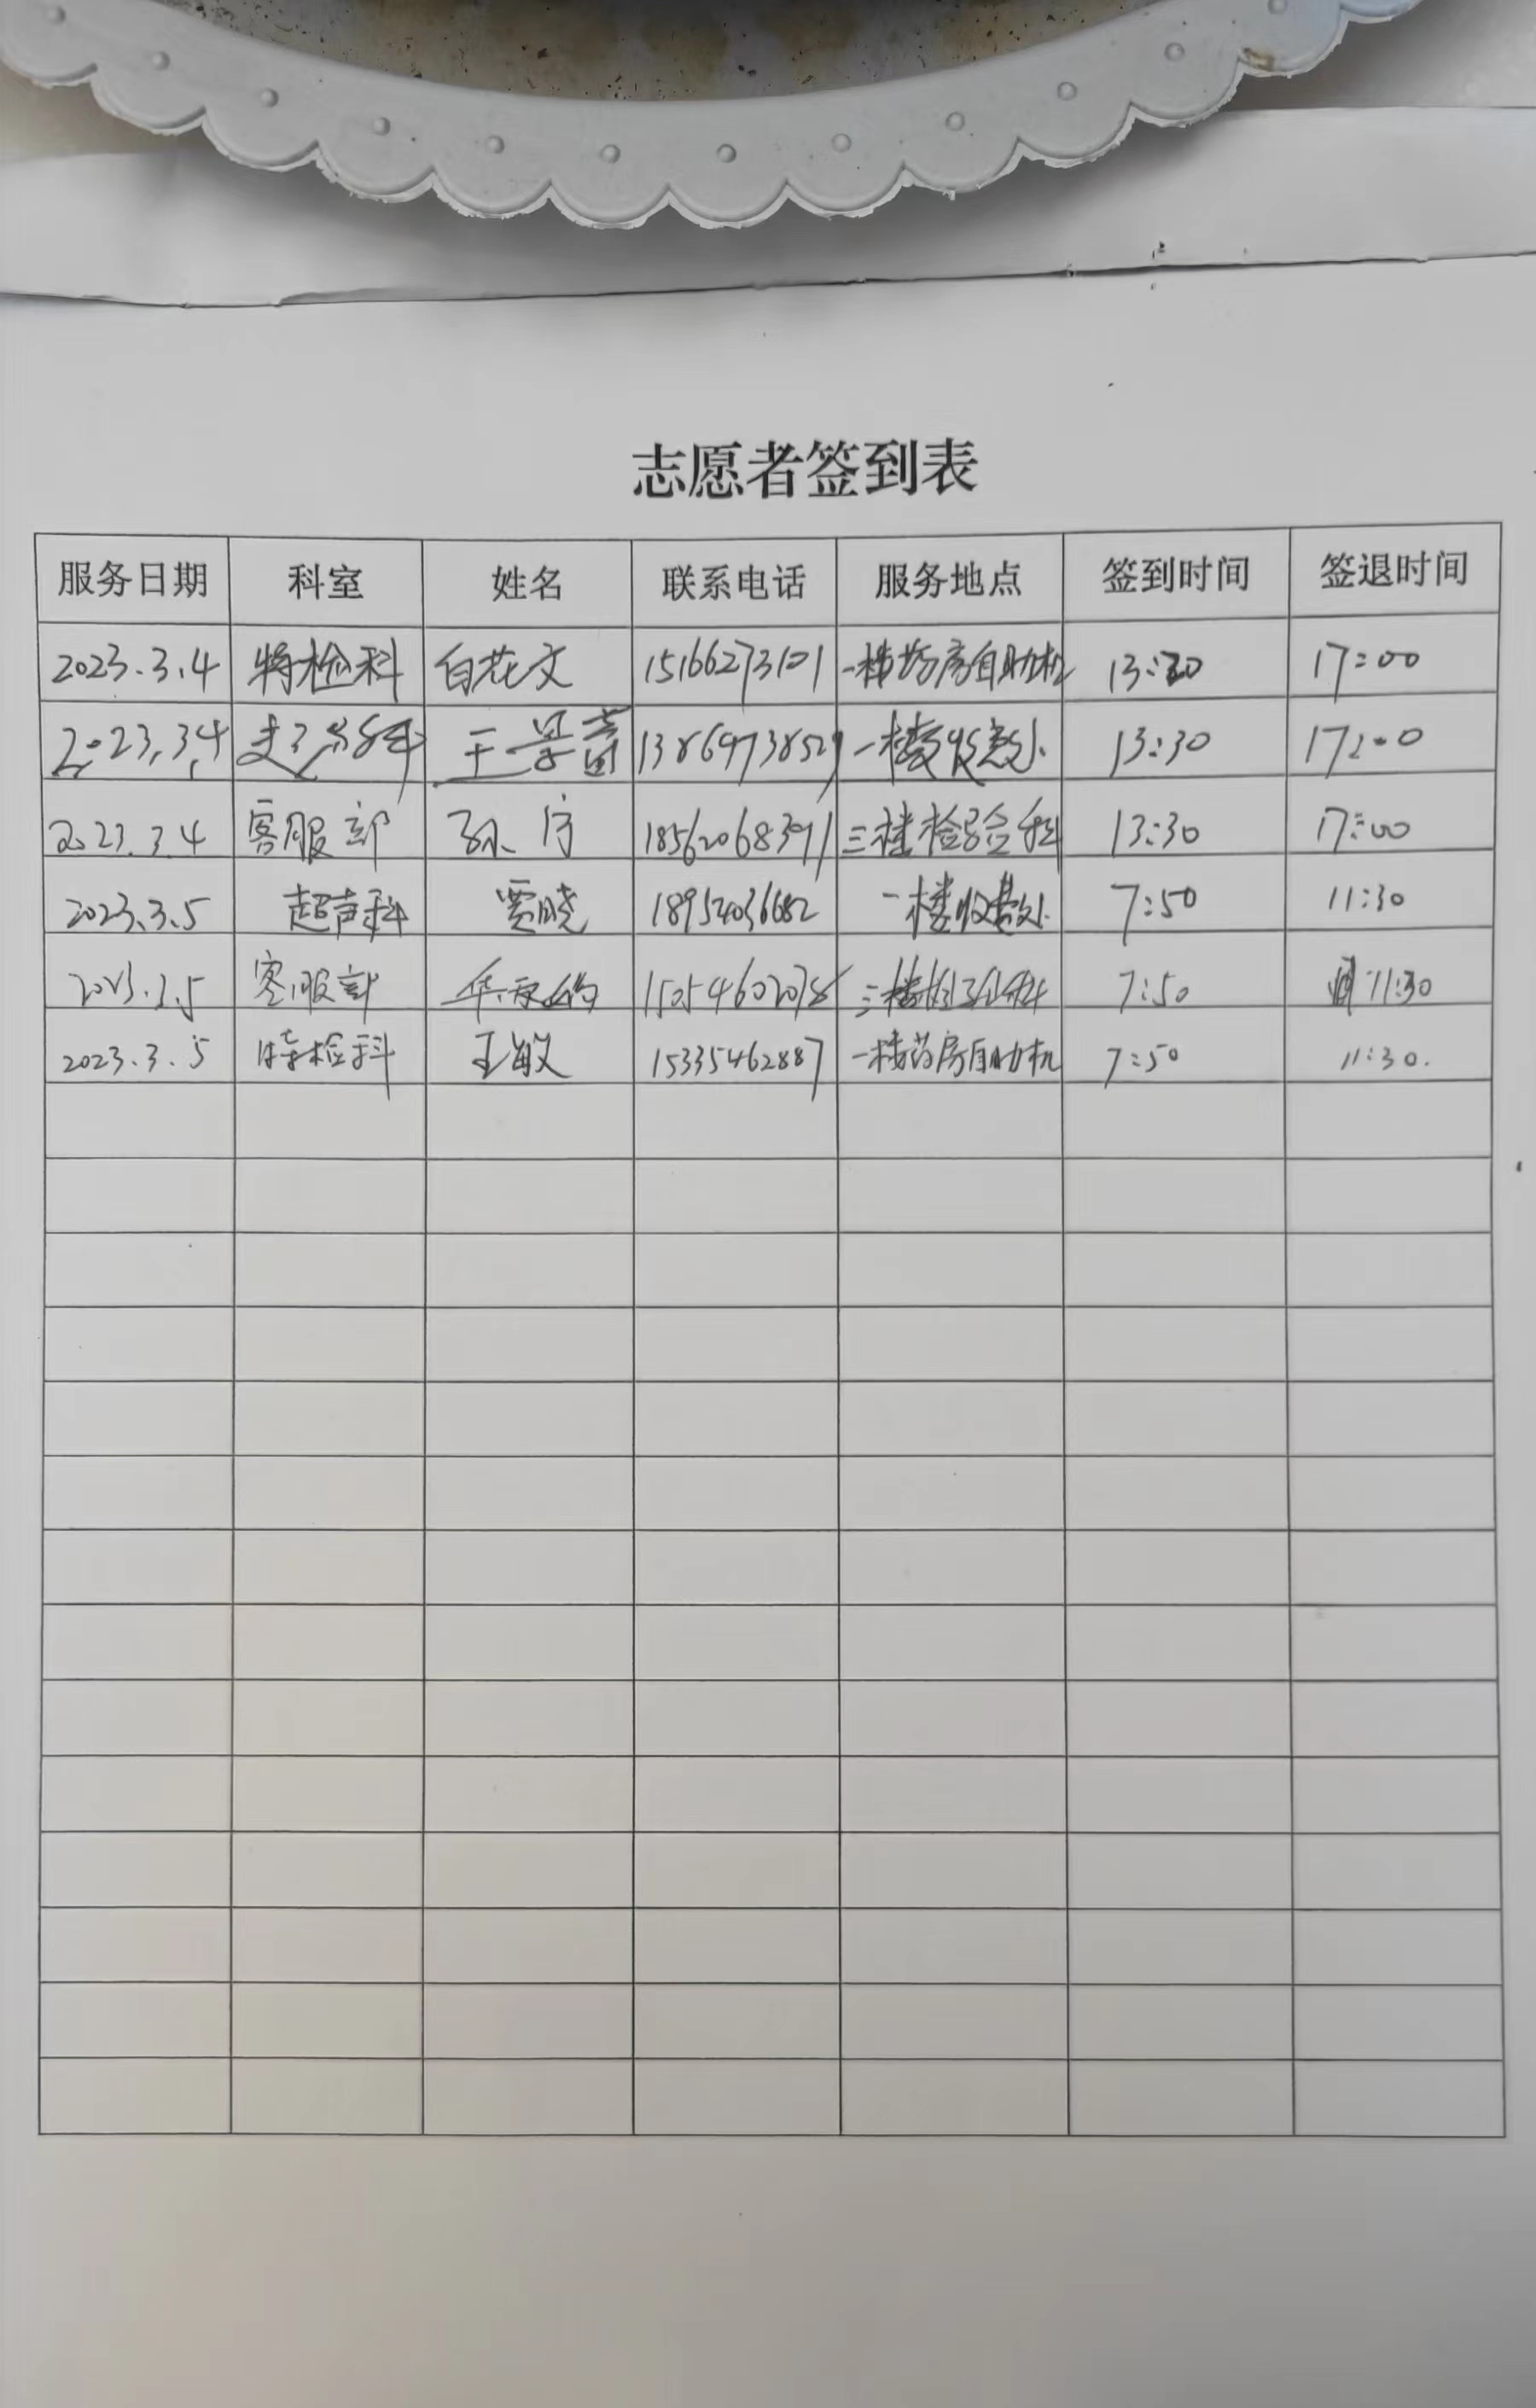 志愿者签到表
服务日期 科室 姓名 联系电话 服务地点 签到时间 签退时间
2023.3.4 特检科 白花文 15166273101 一楼药房自助机 13:30 17:00
2023.3.4 王 13869738529 一楼收费处 13:30 17:00
2023.3.4 客服部 孙 18562068391 三楼检验科 13:30 17:00
2023.3.5 超声科 贾晓 18954036682 一楼收费处 7:50 11:30
2023.3.5 客服部 15054602078 三楼检验科 7:50 11:30
2023.3.5 特检科 王敏 15335462887 一楼药房自助机 7:50 11:30.